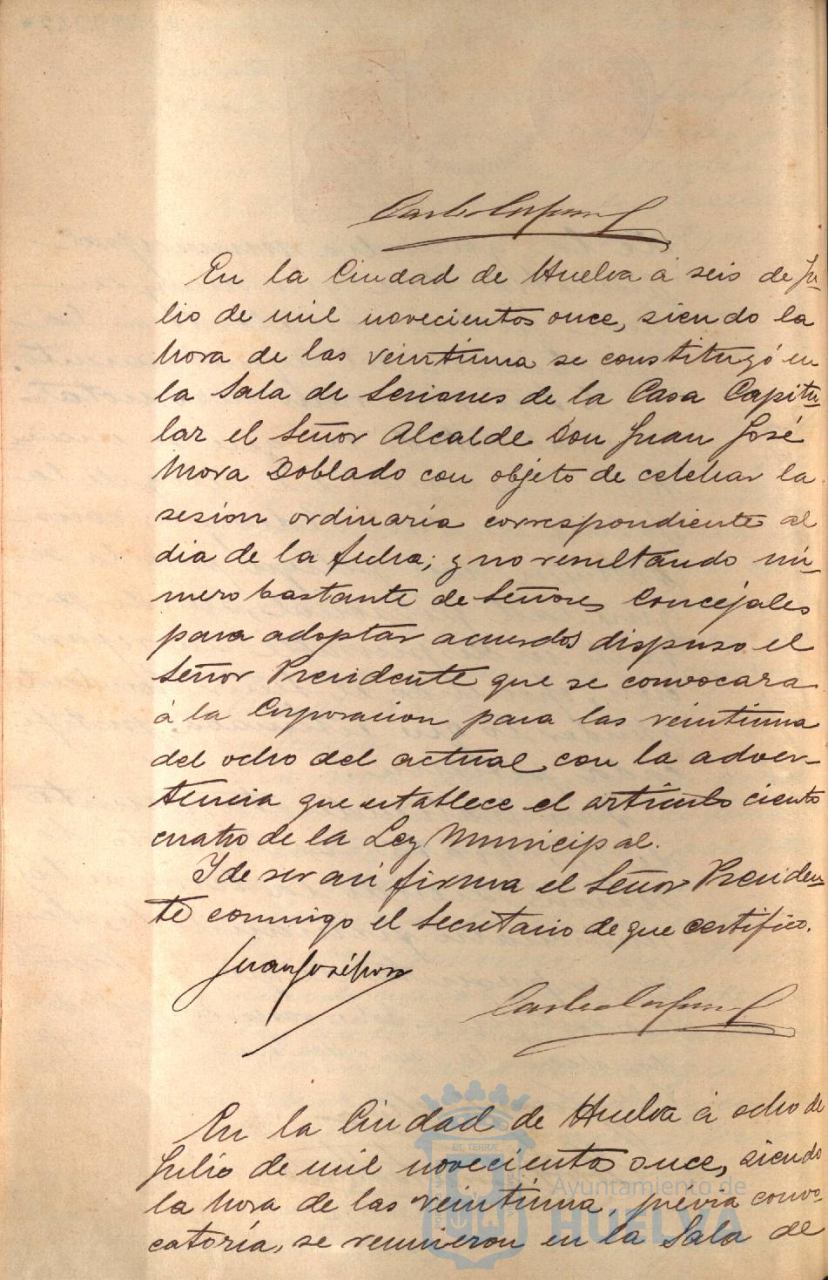 En la Ciudad de Huelva á seis de Ju-
lio de mil novecientos once, siendo la
hora de las veintiuna se constituyó en
la Sala de Sesiones de la Casa Capitu-
lar el Señor Alcalde Don Juan José
Mora Doblado con objeto de celebrar la
sesion ordinaria correspondiente al
dia de la fecha; y no resultando nú-
mero bastante de Señores Concejales
para adoptar acuerdos dispuso el
Señor Presidente que se convocara
á la Corporacion para las veintiuna
del ocho del actual con la adver-
tencia que establece el artículo ciento
cuatro de la Ley Municipal.
Y de ser asi firma el Señor Presiden-
te conmigo el Secretario de que certifico.
Juan José Mora
En la Ciudad de Huelva á ocho de
Julio de mil novecientos once, siendo
la hora de las veintiuna, previa convo-
catoria, se reunieron en la Sala de
Ayuntamiento de
HUELVA